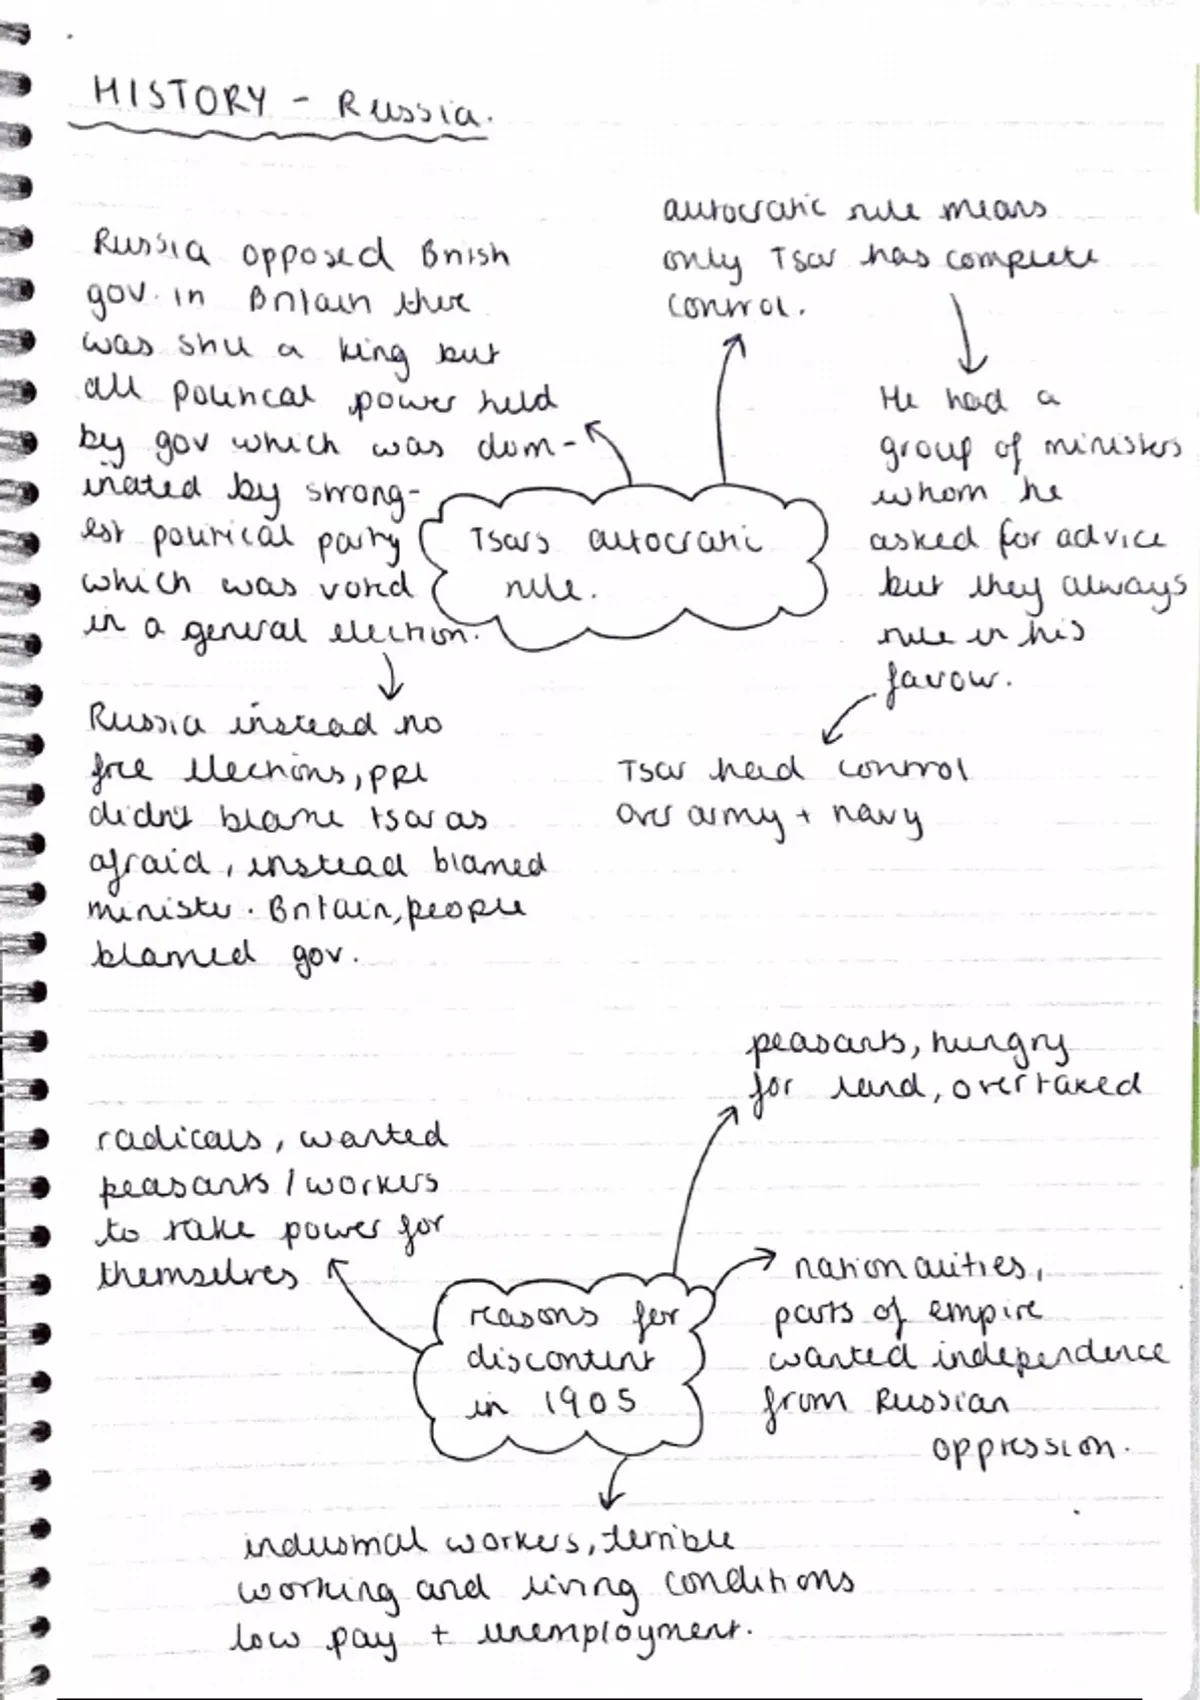 HISTORY - Russia.
autocratic rule means
only Tsar has complete
control.
He had a
group of ministers
whom he
asked for advice
but they always
rule in his
favour.
Tsar had control
over army + navy
Russia opposed British
gov. in Britain there
was still a king but
all political power held
by gov which was dom-
inated by strong-
est political party
which was voted
in a general election.
Russia instead no
free elections, ppl
didn't blame tsar as
afraid, instead blamed
minister. Britain, people
blamed gov.
Tsars autocratic
rule.
peasants, hungry
for land, overtaxed
radicals, wanted
peasants / workers
to take power for
themselves
nationalities,
parts of empire
wanted independence
from Russian
oppression.
reasons for
discontent
in 1905
industrial workers, terrible
working and living conditions
low pay + unemployment.